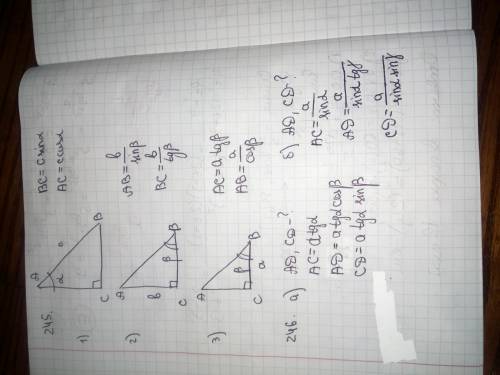 245.
1) A α c C B
BC = c sinα
AC = c cosα
2) A b β C B
AB = b/sinβ
BC = b/tgβ
3) A β a C B
AC = a tgβ
AB = a/cosβ
246. а) AD, CD - ?
AC = a tgα
AD = a tgα cosβ
CD = a tgα sinβ
б) AD, CD - ?
AC = a/sinα
AD = a/sinα tgβ
CD = a/sinα sinβ